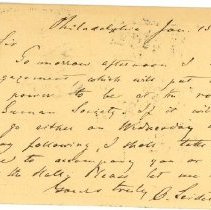 Philadelphia Jan. 13
Sir
To morrow afternoon I
gagement, which will put
power to be at the ro
Seaman Society. If it wi
go either on Wednesday
ay following, I shall take
to accompany you or
the Hall. Please let me
Yours truly